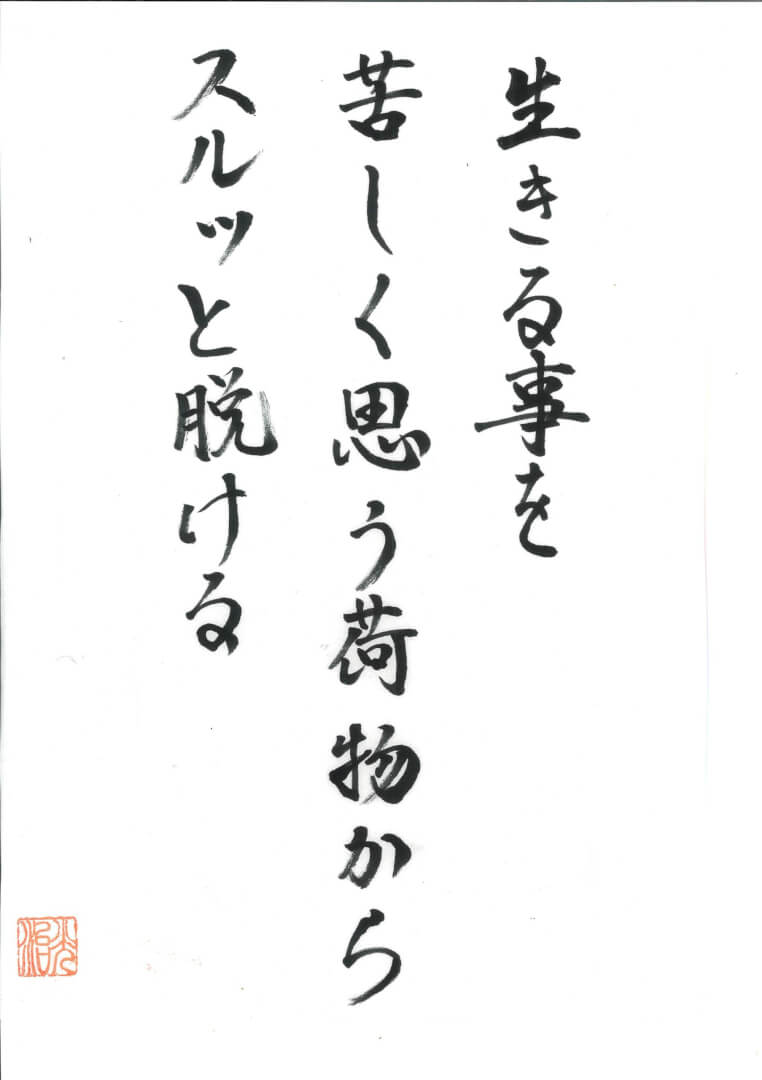 生きる事を
苦しく思う荷物から
スルッと脱ける